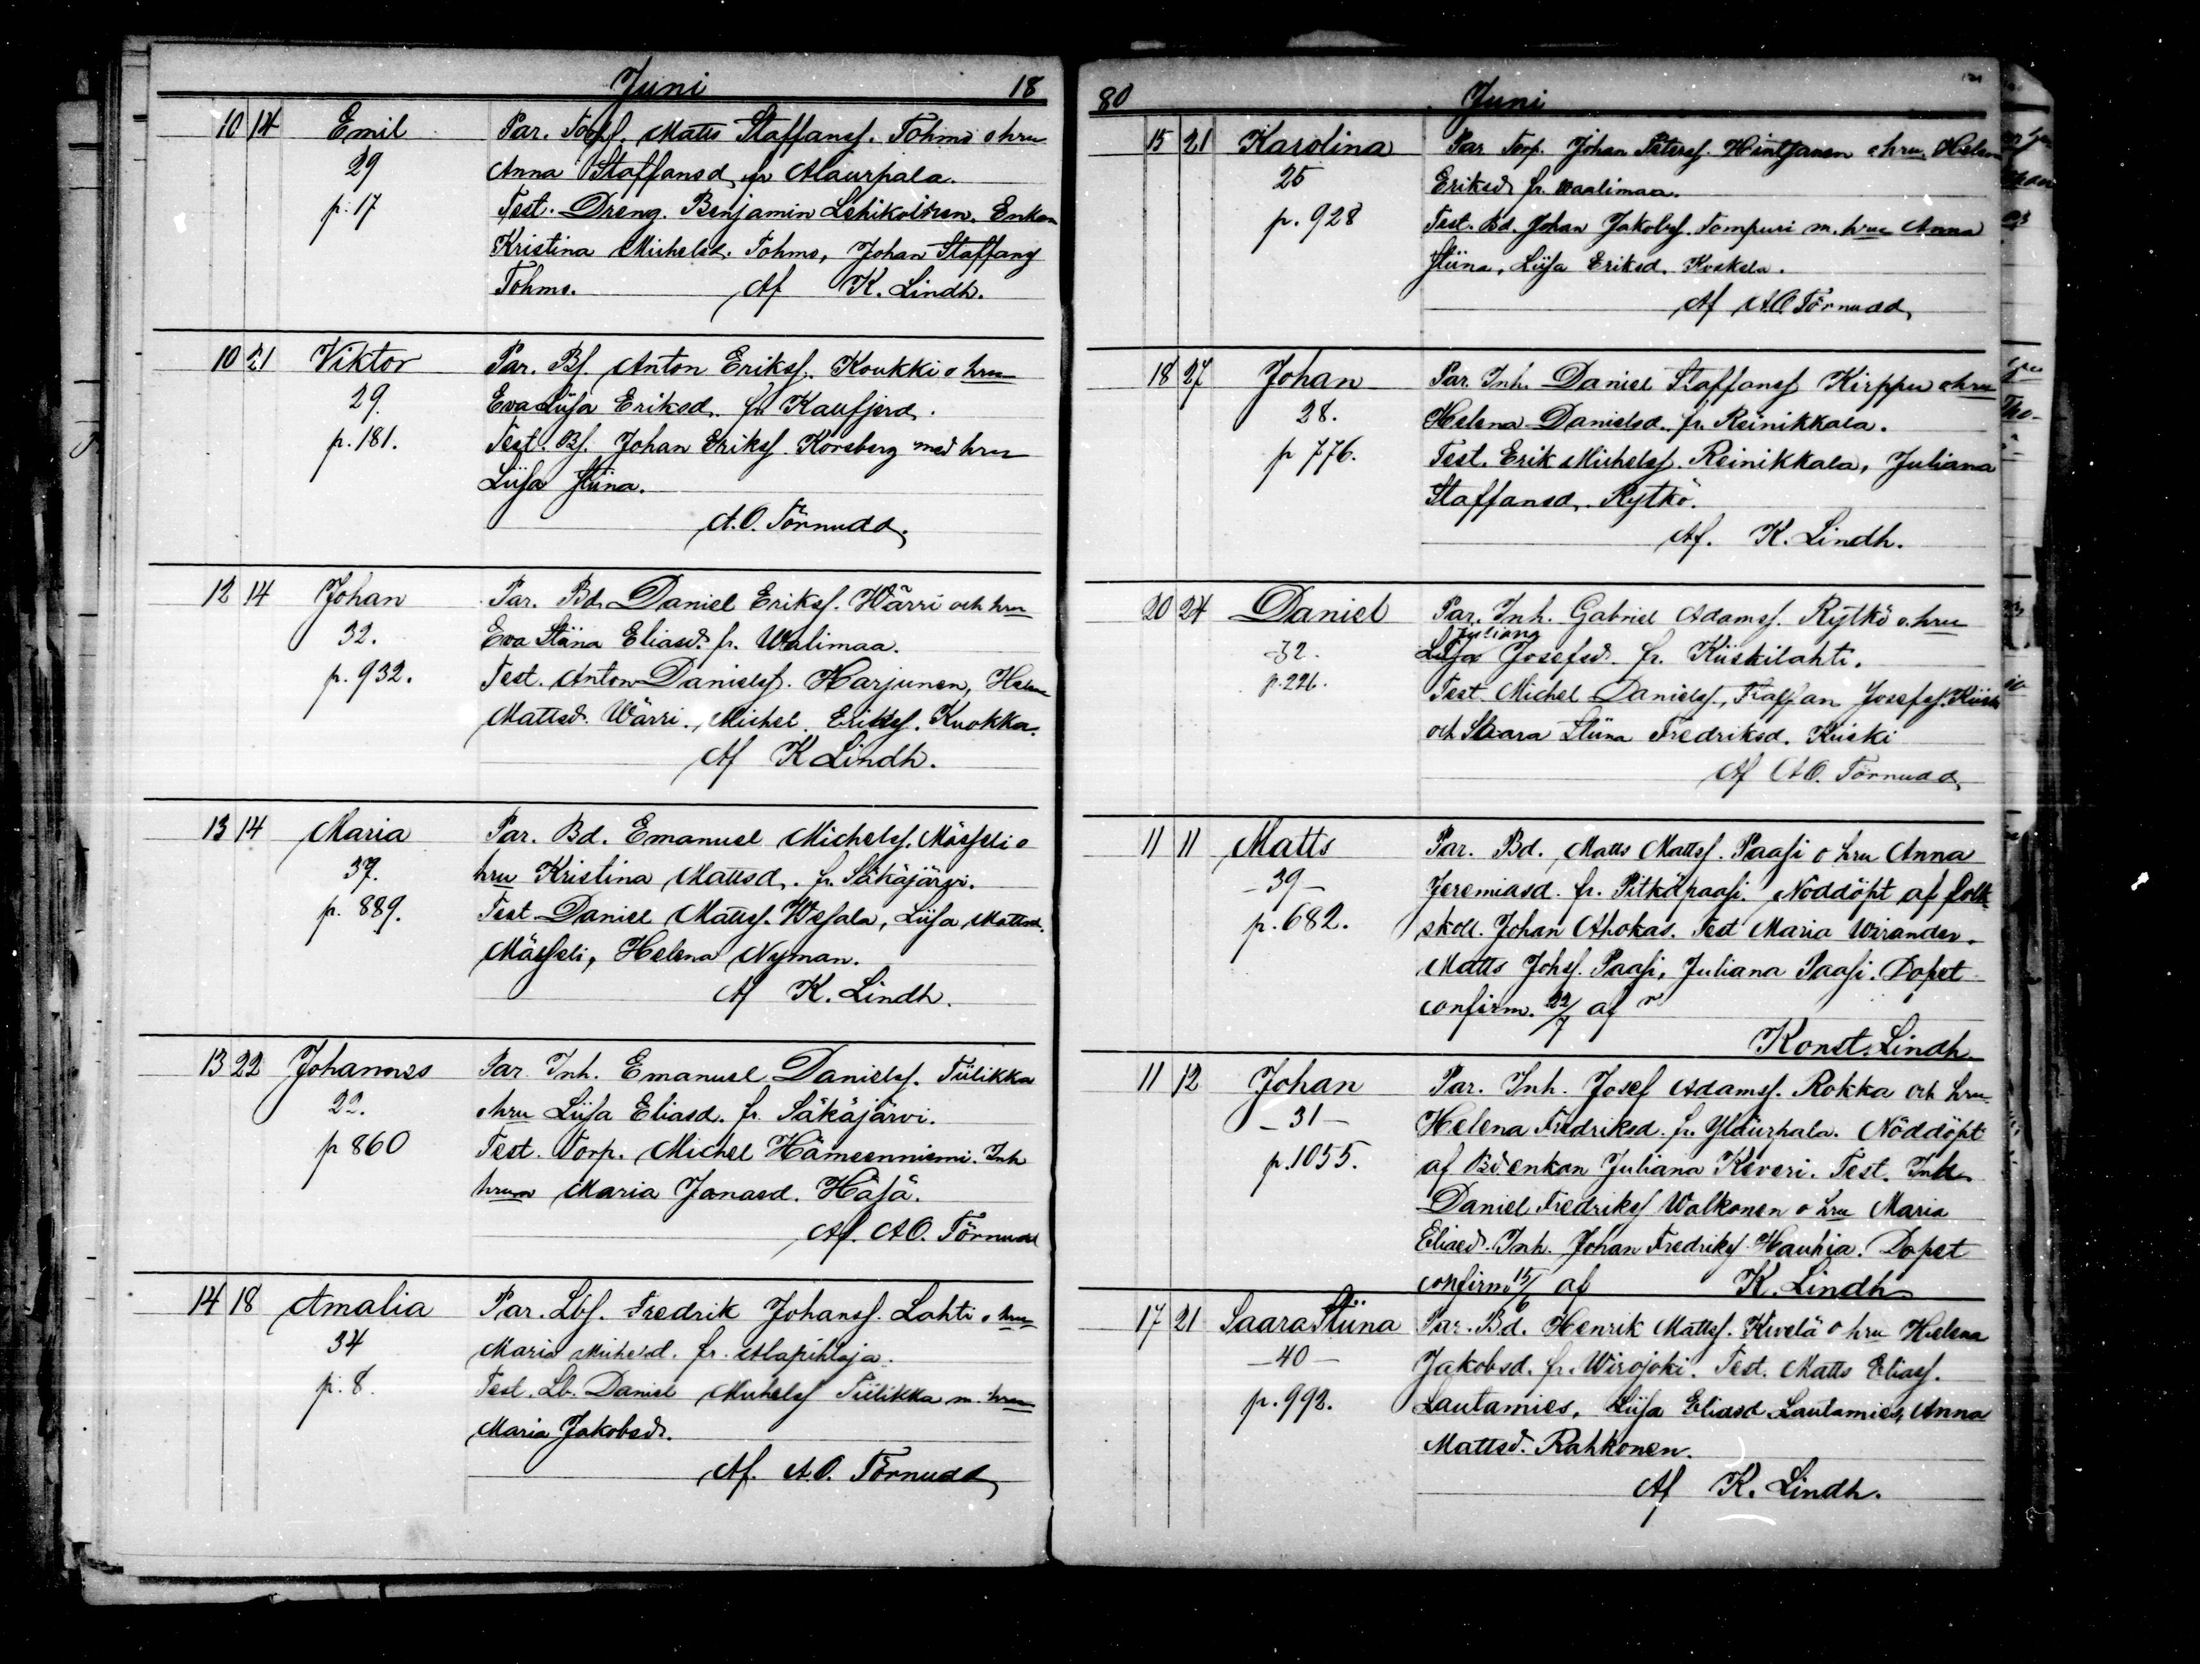 Juni 18
10 14 Emil Par. Torpf. Matts Staffansf. Tohmo o hru
29 Anna Staffansd. fr Alaurpala.
p. 17 Test. Dreng. Benjamin Lehikoinen. Enkan
Kristina Michelsd. Tohmo, Johan Staffansf
Tohmo. Af K. Lindh.
10 21 Viktor Par. Bf Anton Eriksf. Koukki o hru
29. Eva Liisa Eriksd. fr Kaufjerd.
p. 181. Test. Bf. Johan Eriksf. Korsberg med hru
Liisa Stiina.
A.O. Törnudd.
12 14 Johan Par. Bd. Daniel Eriksf. Wärri och hru
32. Eva Stina Eliasd. fr. Walimaa.
p. 932. Test. Anton Danielsf. Harjunen, Helena
Mattsd. Wärri. Michel Eriksf. Kuokka.
Af K Lindh.
13 14 Maria Par. Bd. Emanuel Michelsf. Mässeli o
37. hru Kristina Mattsd. fr. Säkäjärvi.
p. 889. Test Daniel Mattsf. Wesala, Liisa Mattsd.
Mässeli, Helena Nyman.
Af K. Lindh.
13 22 Johannes Par. Inh. Emanuel Danielsf. Tiilikka
22. o hru Liisa Eliasd. fr. Säkäjärvi.
p 860 Test. Torp. Michel Hämeenniemi. Inh
hrun Maria Jonasd. Häsä.
Af. A.O. Törnudd
14 18 Amalia Par. Lbf. Fredrik Johansf. Lahti o hru
34 Maria Michelsd. fr. Alapihlaja.
p. 8. Test. Lb. Daniel Michelsf Tiilikka m. hru
Maria Jakobsd.
Af. A.O. Törnudd
80 Juni
15 21 Karolina Par Torp. Johan Petersf. Hintsanen o hru Helena
25 Eriksd fr. Waalimaa.
p. 928 Test. Bd. Johan Jakobsf. Tompuri m. hru Anna
Stiina, Liisa Eriksd. Koskela.
Af A.O. Törnudd
18 27 Johan Par. Inh. Daniel Staffansf Kirppu o hru
28. Helena Danielsd. fr. Reinikkala.
p 776. Test. Erik Michelsf. Reinikkala, Juliana
Staffansd. Rytkö.
Af. K. Lindh.
20 24 Daniel Par. Inh. Gabriel Adamsf. Rytkö o. hru
Juliana
-32- Liisa Josefsd. fr. Kiiskilahti.
p. 226. Test Michel Danielsf., Staffan Josefsf. Kiiski
och Saara Stiina Fredriksd. Kiiski
Af A.O. Törnudd
11 11 Matts Par. Bd. Matts Mattsf. Paasi o hru Anna
-39- Jeremiasd. fr. Pitkäpaasi. Nöddöpt af folk-
p. 682. skoll. Johan Ahokas. Test Maria Wirander.
Matts Johsf. Paasi, Juliana Paasi. Dopet
confirm. 22/7 af
Konst. Lindh
11 12 Johan Par. Inh. Josef Adamsf. Rokka och hru
-31- Helena Fredriksd. fr. Yläurpala. Nöddöpt
p. 1055. af Bd. enkan Juliana Keveri. Test. Inh
Daniel Fredriksf Walkonen o hru Maria
Eliasd. Inh. Johan Fredriksf Hauhia. Dopet
confirm. 15/6 af K. Lindh
17 21 Saara Stiina Par. Bd. Henrik Mattsf. Kivelä o hru Helena
-40- Jakobsd. fr. Wirojoki. Test. Matts Eliasf.
p. 992. Lautamies, Liisa Eliasd Lautamies, Anna
Mattsd. Rahkonen.
Af K. Lindh.